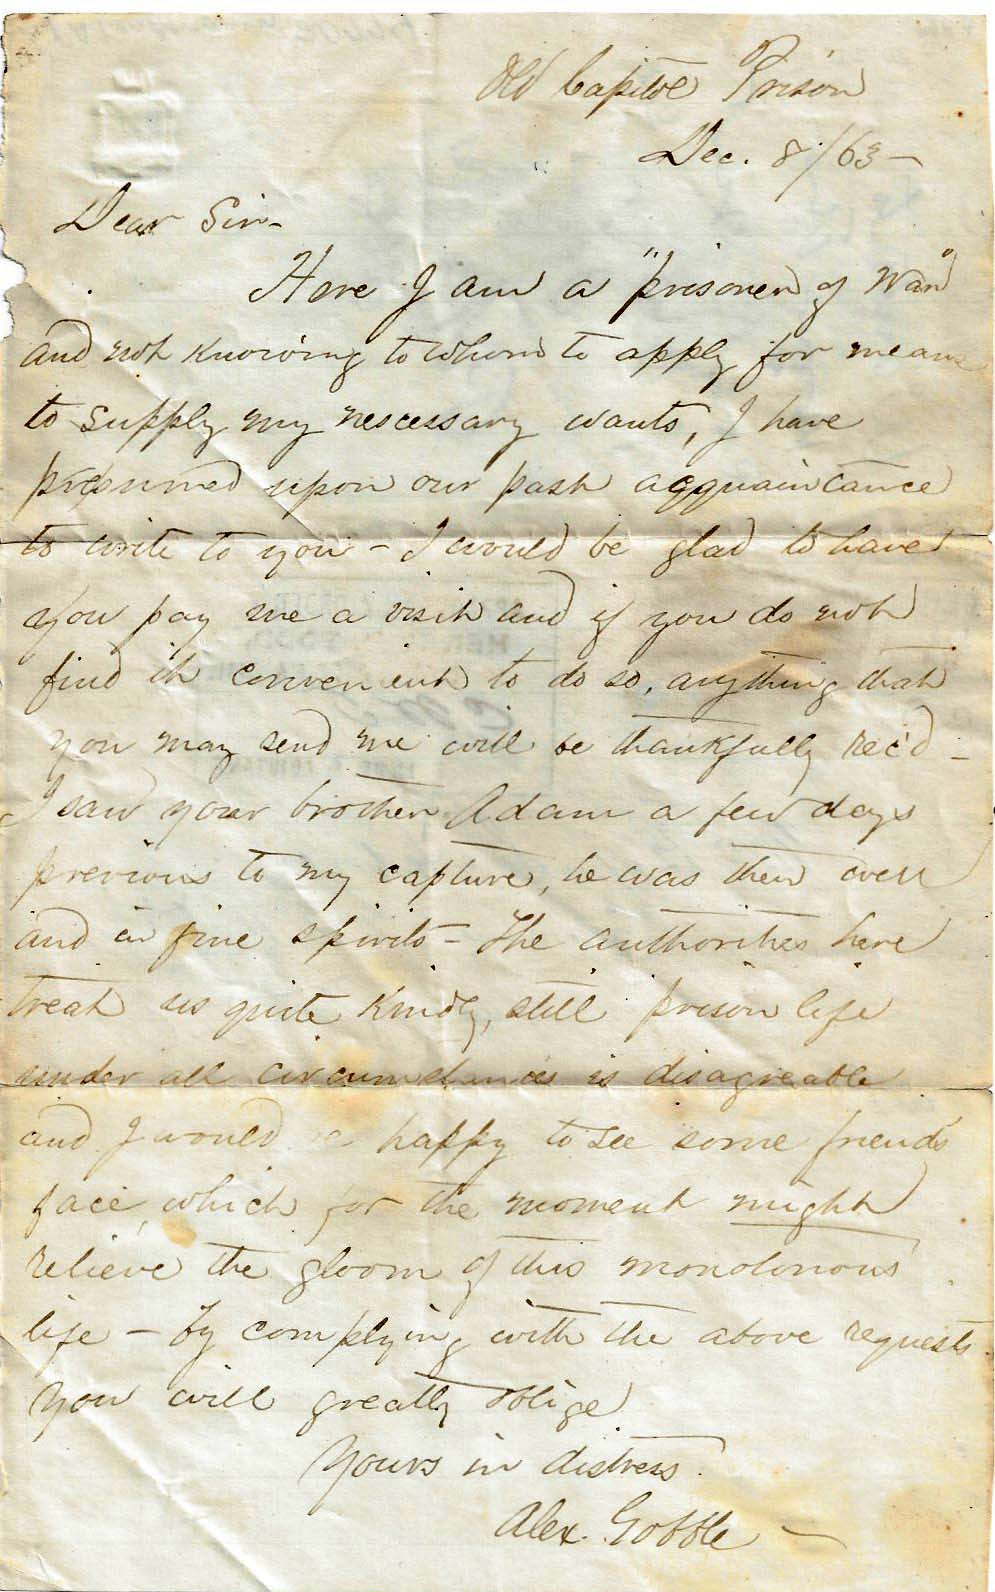 Old Capitol Prison
Dec. 8/63 –
Dear Sir –
Here I am a "prisoner of war"
and not knowing to whom to apply for means
to supply my nescessary wants, I have
presumed upon our past acqquaintance
to write to you – I would be glad to have
you pay me a visit and if you do not
find it convenient to do so, anything that
you may send me will be thankfully rec'd –
I saw your brother Adam a few days
previous to my capture, he was then well
and in fine spirits – The authorities here
treat us quite kindly, still prison life
under all circumstances is disagreable
and I would happy to see some friend's
face, which for the moment might
relieve the gloom of this monotonous
life – By complying with the above requests
you will greatly oblige
Yours in distress.
Alex. Gobble –